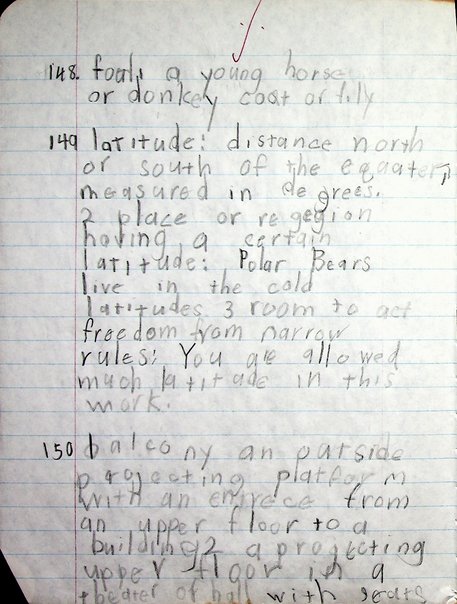 148. foal: a young horse
or donkey coat or filly
149 latitude: distance north
or south of the equater,
measured in degrees.
2 place or regegion
having a certain
latitude: Polar Bears
live in the cold
latitudes 3 room to act
freedom from narrow
rules: You are allowed
much latitude in this
work.
150 balcony an outside
projecting platform
with an entrece from
an upper floor to a
building 2 a progecting
upper floor in a
theater of hall with seats